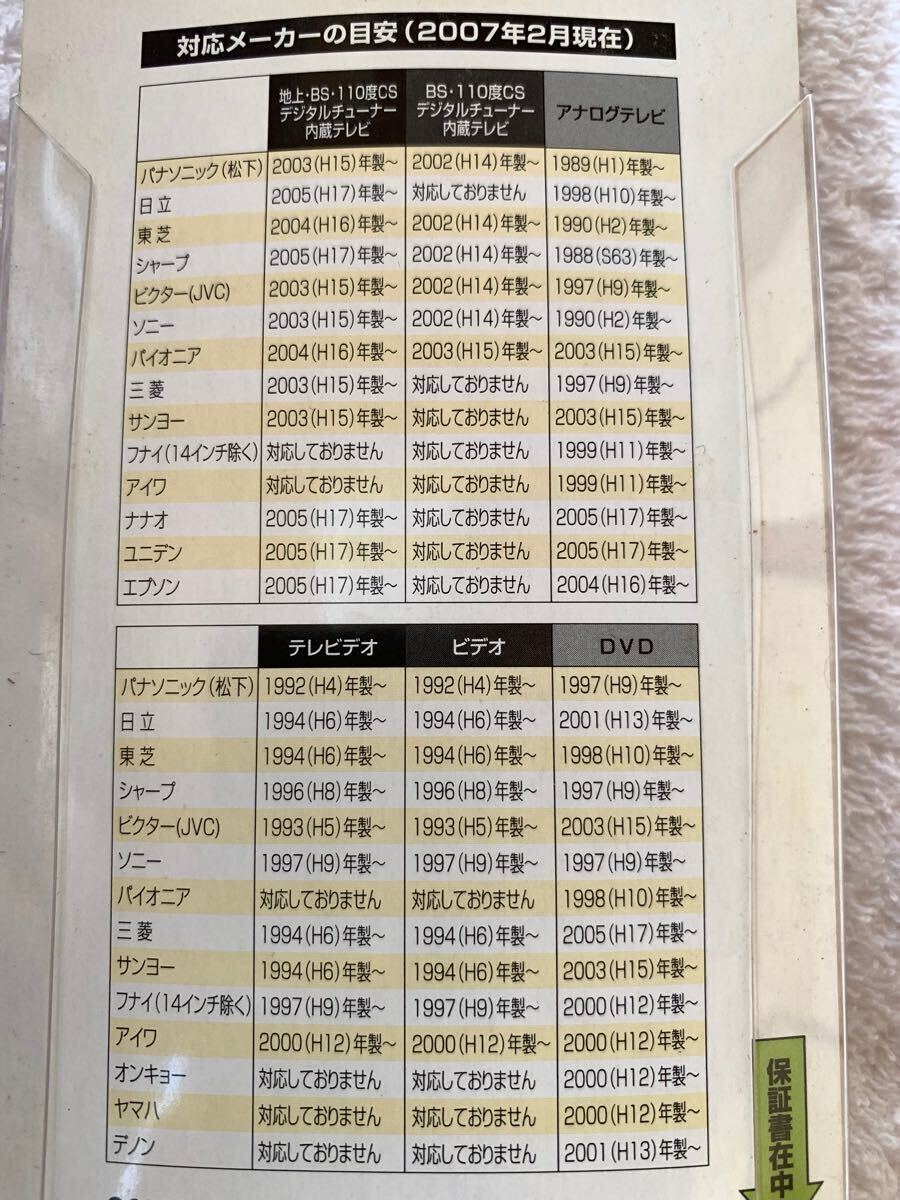 対応メーカーの目安（2007年2月現在）
地上・BS・110度CS
デジタルチューナー
内蔵テレビ
BS・110度CS
デジタルチューナー
内蔵テレビ
アナログテレビ
パナソニック（松下） 2003（H15）年製～ 2002（H14）年製～ 1989（H1）年製～
日立 2005（H17）年製～ 対応しておりません 1998（H10）年製～
東芝 2004（H16）年製～ 2002（H14）年製～ 1990（H2）年製～
シャープ 2005（H17）年製～ 2002（H14）年製～ 1988（S63）年製～
ビクター(JVC) 2003（H15）年製～ 2002（H14）年製～ 1997（H9）年製～
ソニー 2003（H15）年製～ 2002（H14）年製～ 1990（H2）年製～
パイオニア 2004（H16）年製～ 2003（H15）年製～ 2003（H15）年製～
三菱 2003（H15）年製～ 対応しておりません 1997（H9）年製～
サンヨー 2003（H15）年製～ 対応しておりません 2003（H15）年製～
フナイ（14インチ除く） 対応しておりません 対応しておりません 1999（H11）年製～
アイワ 対応しておりません 対応しておりません 1999（H11）年製～
ナナオ 2005（H17）年製～ 対応しておりません 2005（H17）年製～
ユニデン 2005（H17）年製～ 対応しておりません 2005（H17）年製～
エプソン 2005（H17）年製～ 対応しておりません 2004（H16）年製～
テレビデオ ビデオ DVD
パナソニック（松下） 1992（H4）年製～ 1992（H4）年製～ 1997（H9）年製～
日立 1994（H6）年製～ 1994（H6）年製～ 2001（H13）年製～
東芝 1994（H6）年製～ 1994（H6）年製～ 1998（H10）年製～
シャープ 1996（H8）年製～ 1996（H8）年製～ 1997（H9）年製～
ビクター(JVC) 1993（H5）年製～ 1993（H5）年製～ 2003（H15）年製～
ソニー 1997（H9）年製～ 1997（H9）年製～ 1997（H9）年製～
パイオニア 対応しておりません 対応しておりません 1998（H10）年製～
三菱 1994（H6）年製～ 1994（H6）年製～ 2005（H17）年製～
サンヨー 1994（H6）年製～ 1994（H6）年製～ 2003（H15）年製～
フナイ（14インチ除く） 1997（H9）年製～ 1997（H9）年製～ 2000（H12）年製～
アイワ 2000（H12）年製～ 2000（H12）年製～ 2000（H12）年製～
オンキョー 対応しておりません 対応しておりません 2000（H12）年製～
ヤマハ 対応しておりません 対応しておりません 2000（H12）年製～
デノン 対応しておりません 対応しておりません 2001（H13）年製～
保証書在中